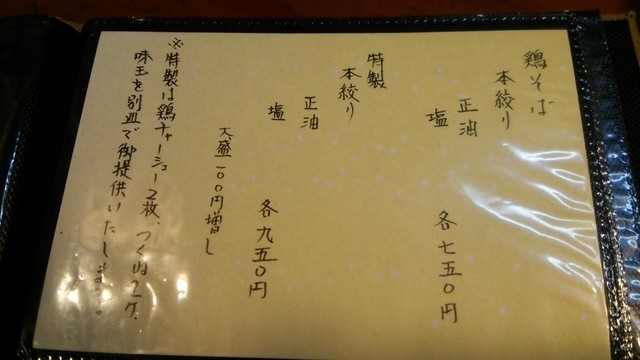 鶏そば
本絞り
正油
塩
各七五〇円
特製
本絞り
正油
塩
各九五〇円
大盛一〇〇円増し
※特製は鶏チャーシュー2枚、つくね2ケ、
味玉を別皿で御提供いたします。